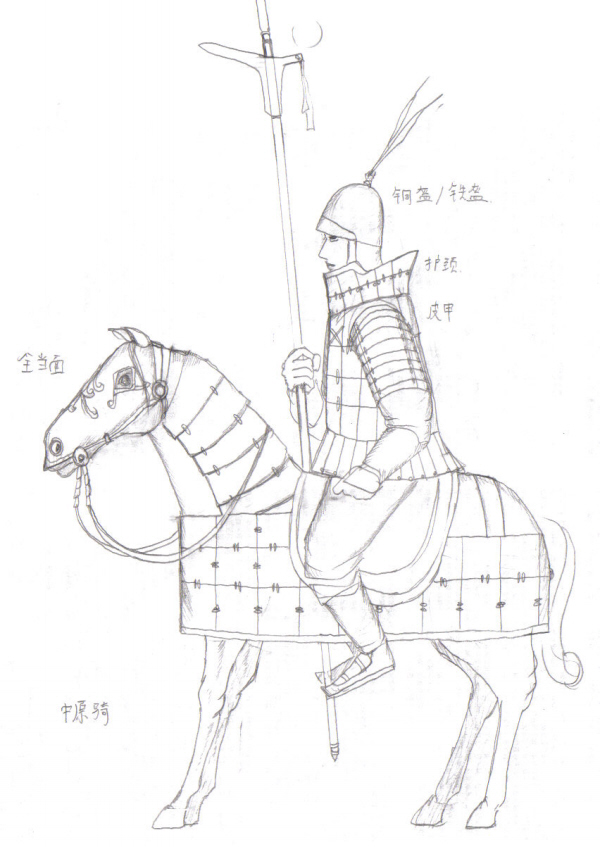 铜盔/铁盔
护颈
皮甲
全当面
中原骑